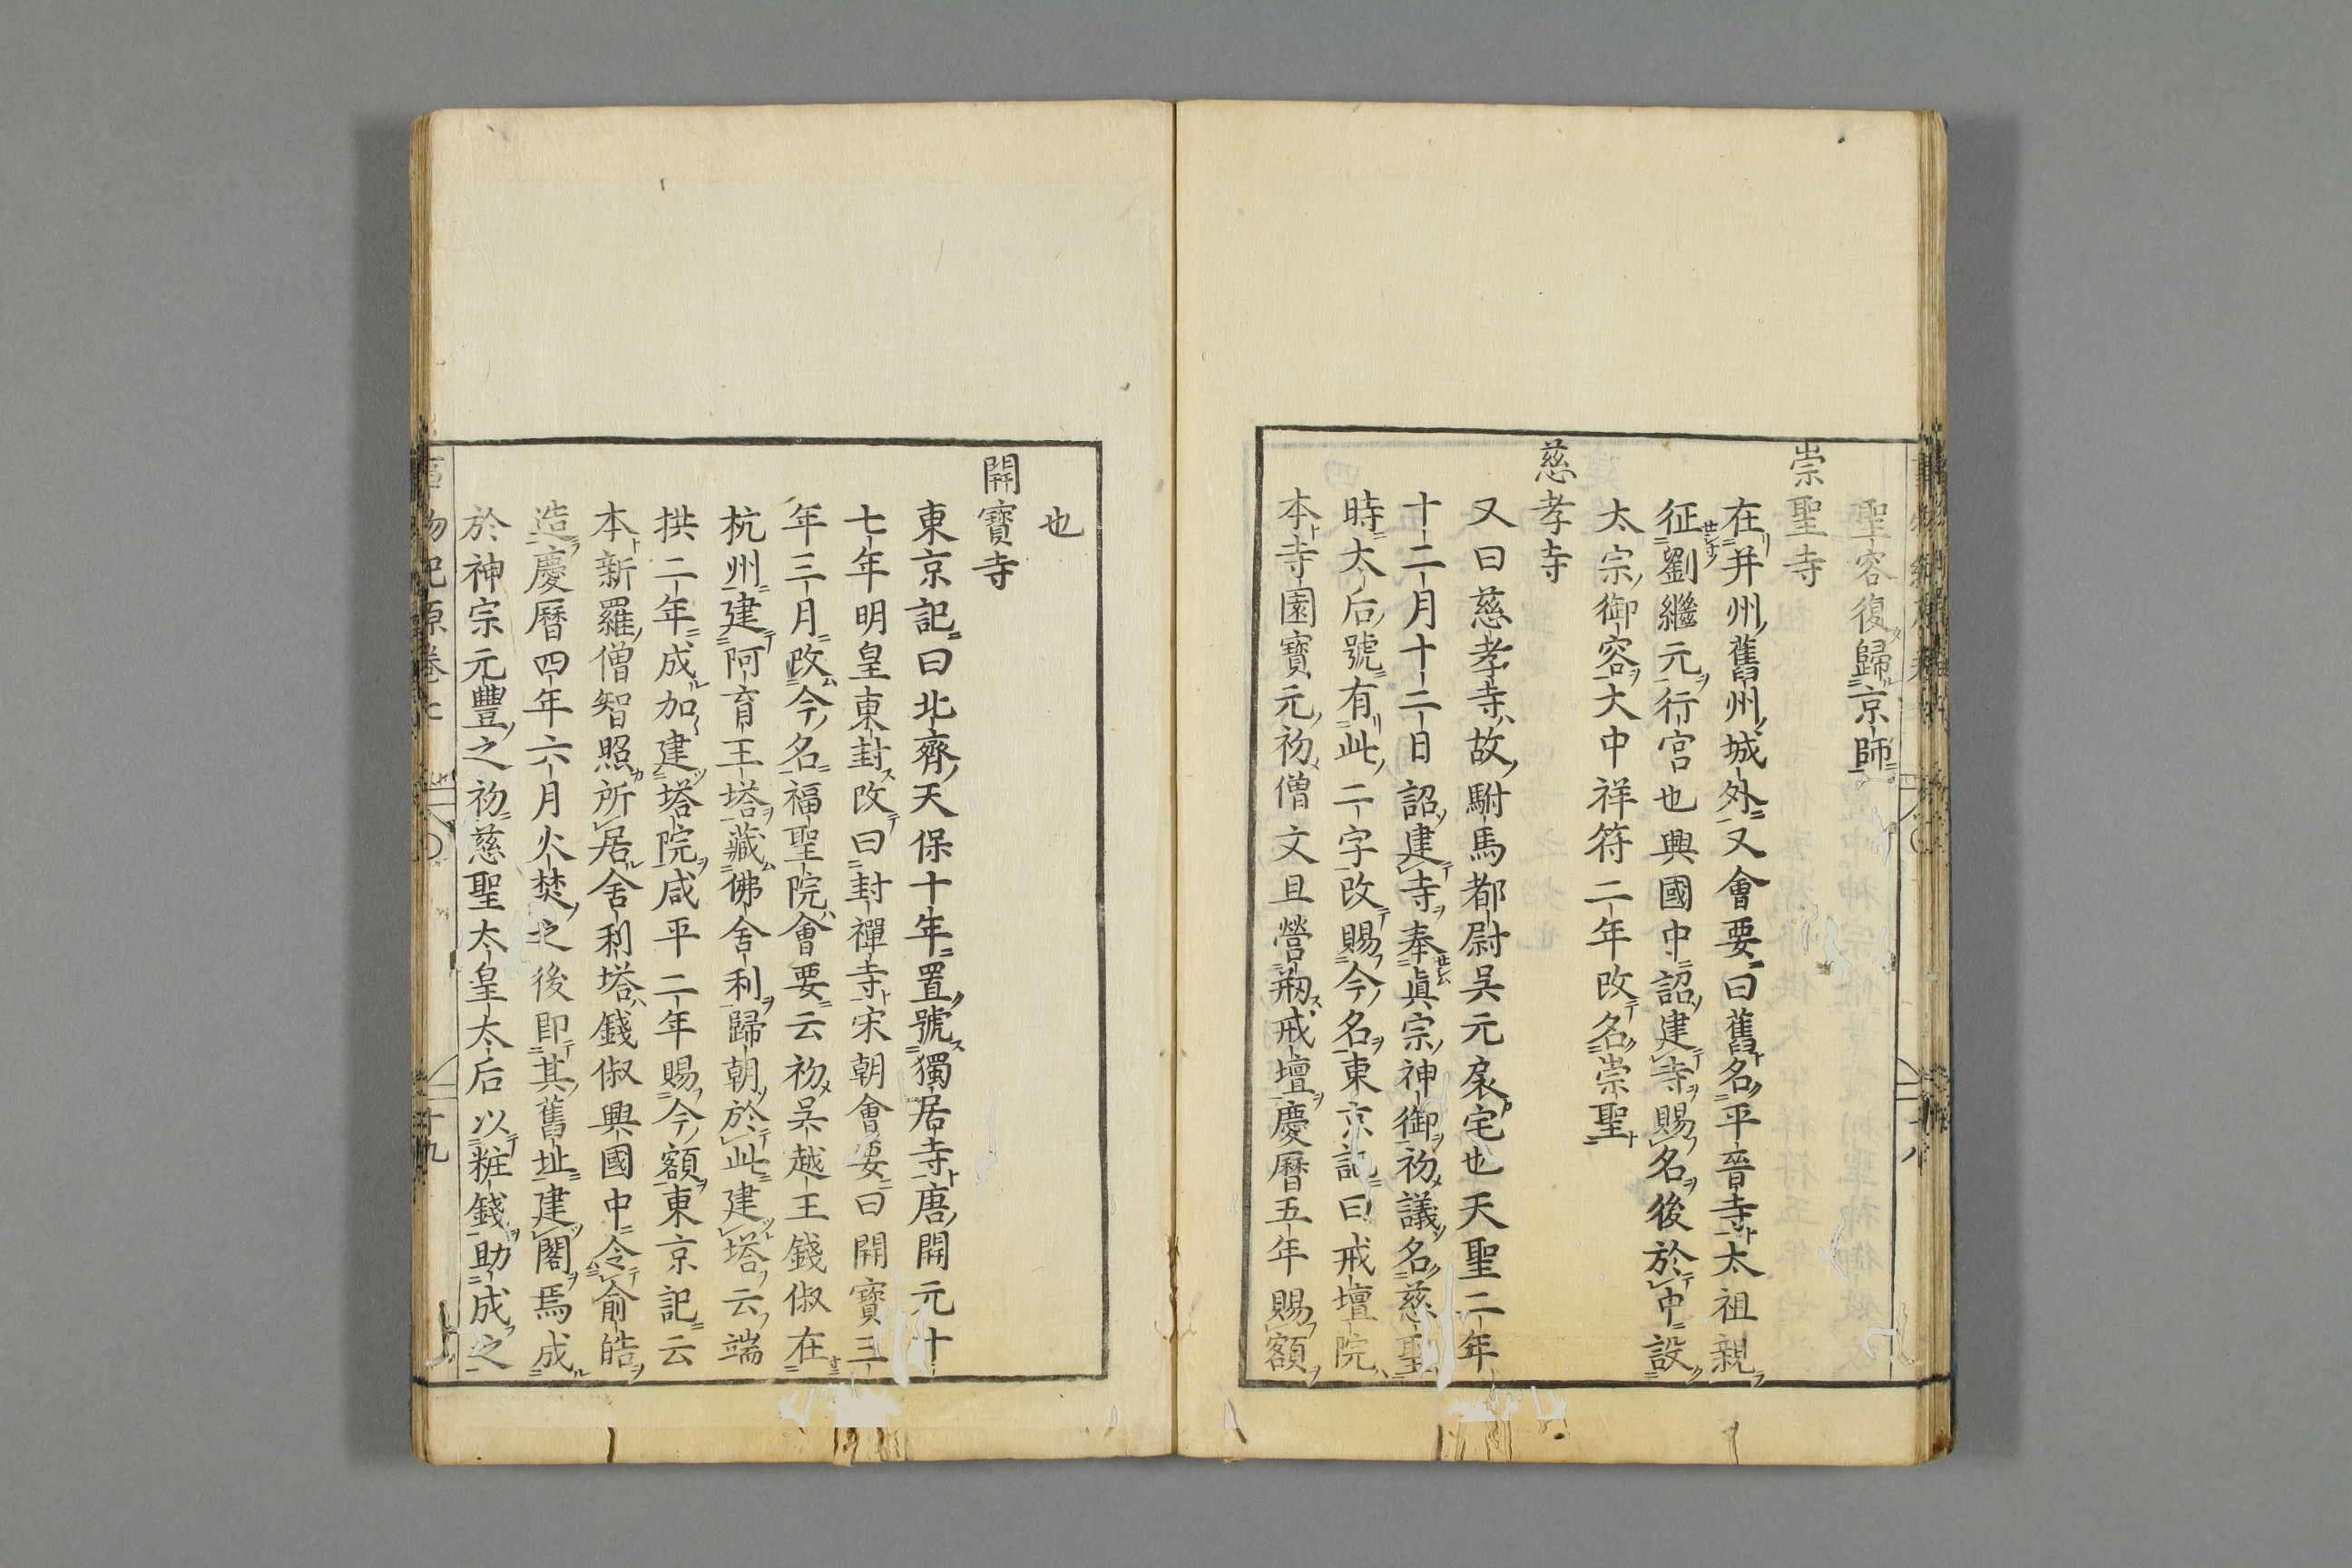 聖容復歸京師
崇聖寺
在并州舊州城外又會要曰舊名平晉寺太祖親
征劉繼元行宮也興國中詔建寺賜名後於中設
太宗御容大中祥符二年改名崇聖
慈孝寺
又曰慈孝寺故駙馬都尉吳元扆宅也天聖二年
十二月十二日詔建寺奉眞宗神御初議名慈聖
時太后號有此二字改賜今名東京記曰戒壇院
本寺園寶元初僧文旦營剏戒壇慶曆五年賜額
也
開寶寺
東京記曰北齊天保十年置號獨居寺唐開元十
七年明皇東封改曰封禪寺宋朝會要曰開寶三
年三月改今名福聖院會要云初吳越王錢俶在
杭州建阿育王塔藏佛舍利歸朝於此建塔云端
拱二年成加建塔院咸平二年賜今額東京記云
本新羅僧智照所居舍利塔錢俶興國中令俞皓
造慶曆四年六月火焚之後即其舊址建閣焉成
於神宗元豐之初慈聖太皇太后以粧錢助成之
事物紀原卷七
十九